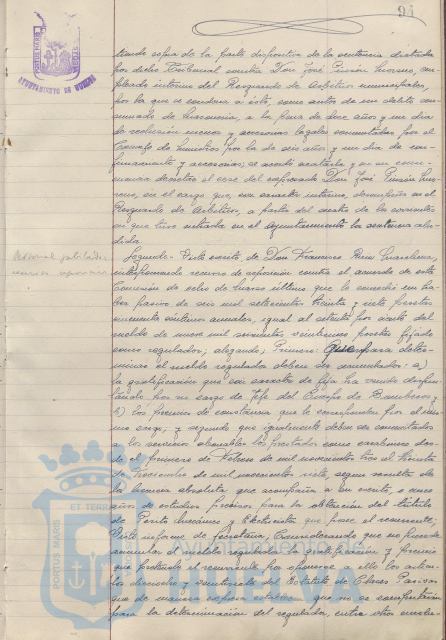 94
AYUNTAMIENTO DE HUELVA
tiendo copia de la parte dispositiva de la sentencia dictada
por dicho Tribunal contra Don José Pinzón
pleado interino del Resguardo de Arbitrios municipales,
por la que se condena a éste, como autor de un delito con-
sumado de masonería, a la pena de doce años y un dia
de reclusión menor y accesorias legales conmutadas por el
Consejo de Ministros por la de seis años y un dia de con-
finamiento y accesorias; se acordó acatarla y en su conse-
cuencia decretar el cese del expresado Don José Pinzón
en el cargo que, con carácter interino, desempeña en el
Resguardo de Arbitrios, a partir del de los corrientes
en que tuvo entrada en el Ayuntamiento la sentencia alu-
dida.
Segundo.- Visto escrito de Don Francisco
interponiendo recurso de reposición contra el acuerdo de esta
Comisión de ocho de último que le concedió un ha-
ber pasivo de seis mil setecientas treinta y siete pesetas
cincuenta céntimos anuales, igual al setenta por ciento del
sueldo de nueve mil seiscientas veinticinco pesetas fijado
como regulador; alegando; Primero: Que para deter-
minar el sueldo regulador deben ser acumulados: a)
la gratificación que con carácter de fija ha venido disfru-
tando por su cargo de Jefe del Cuerpo de Bomberos y
b) los premios de constancia que le corresponden por el mis-
mo cargo; y segundo que igualmente deben ser computados
a los servicios abonables los prestados como carabinero des-
de el primero de Febrero de mil novecientos tres al treinta
de Noviembre de mil novecientos siete, según resulta de
la licencia absoluta que acompaña a su escrito, o cinco
años de estudios precisos para la obtención del título
de Perito Mecánico y Electricista que posee el recurrente.
Visto informe de Secretaría, Considerando que no puede
acumular al sueldo regulador la gratificación y premios
que pretende el recurrente por oponerse a ello los artícu-
los dieciocho y veinticuatro del Estatuto de Clases Pasivas
que de manera expresa establece que no se computarán
para la determinación del regulador, entre otros emolu-
Personal jubilado
recurso reposición
PORTUS MARIS
ET TERRAE